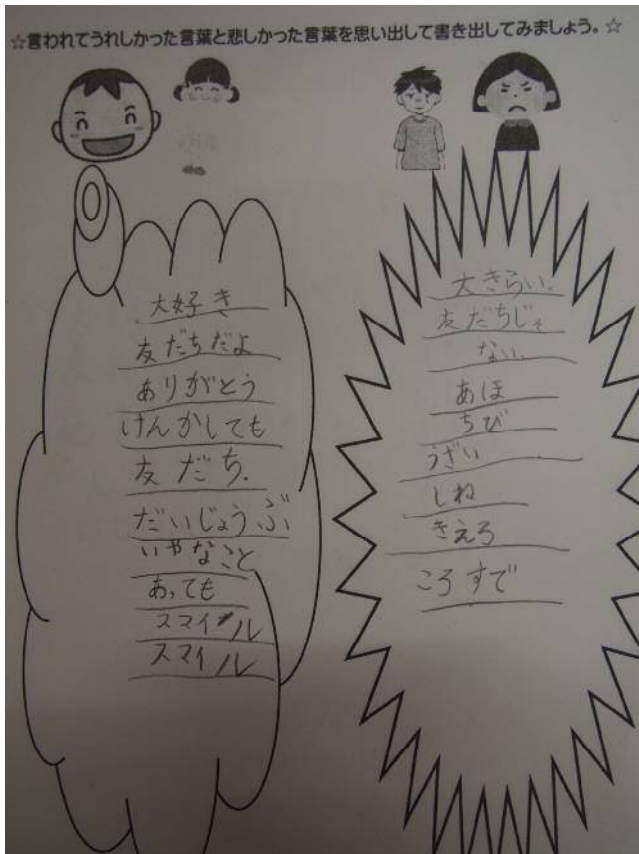 ☆言われてうれしかった言葉と悲しかった言葉を思い出して書き出してみましょう。☆
大好き
友だちだよ
ありがとう
けんかしても
友だち.
だいじょうぶ
いやなこと
あっても
スマイル
スマイル
大きらい.
友だちじゃ
ない.
あほ
ちび
うざい
しね
きえろ
ころすで